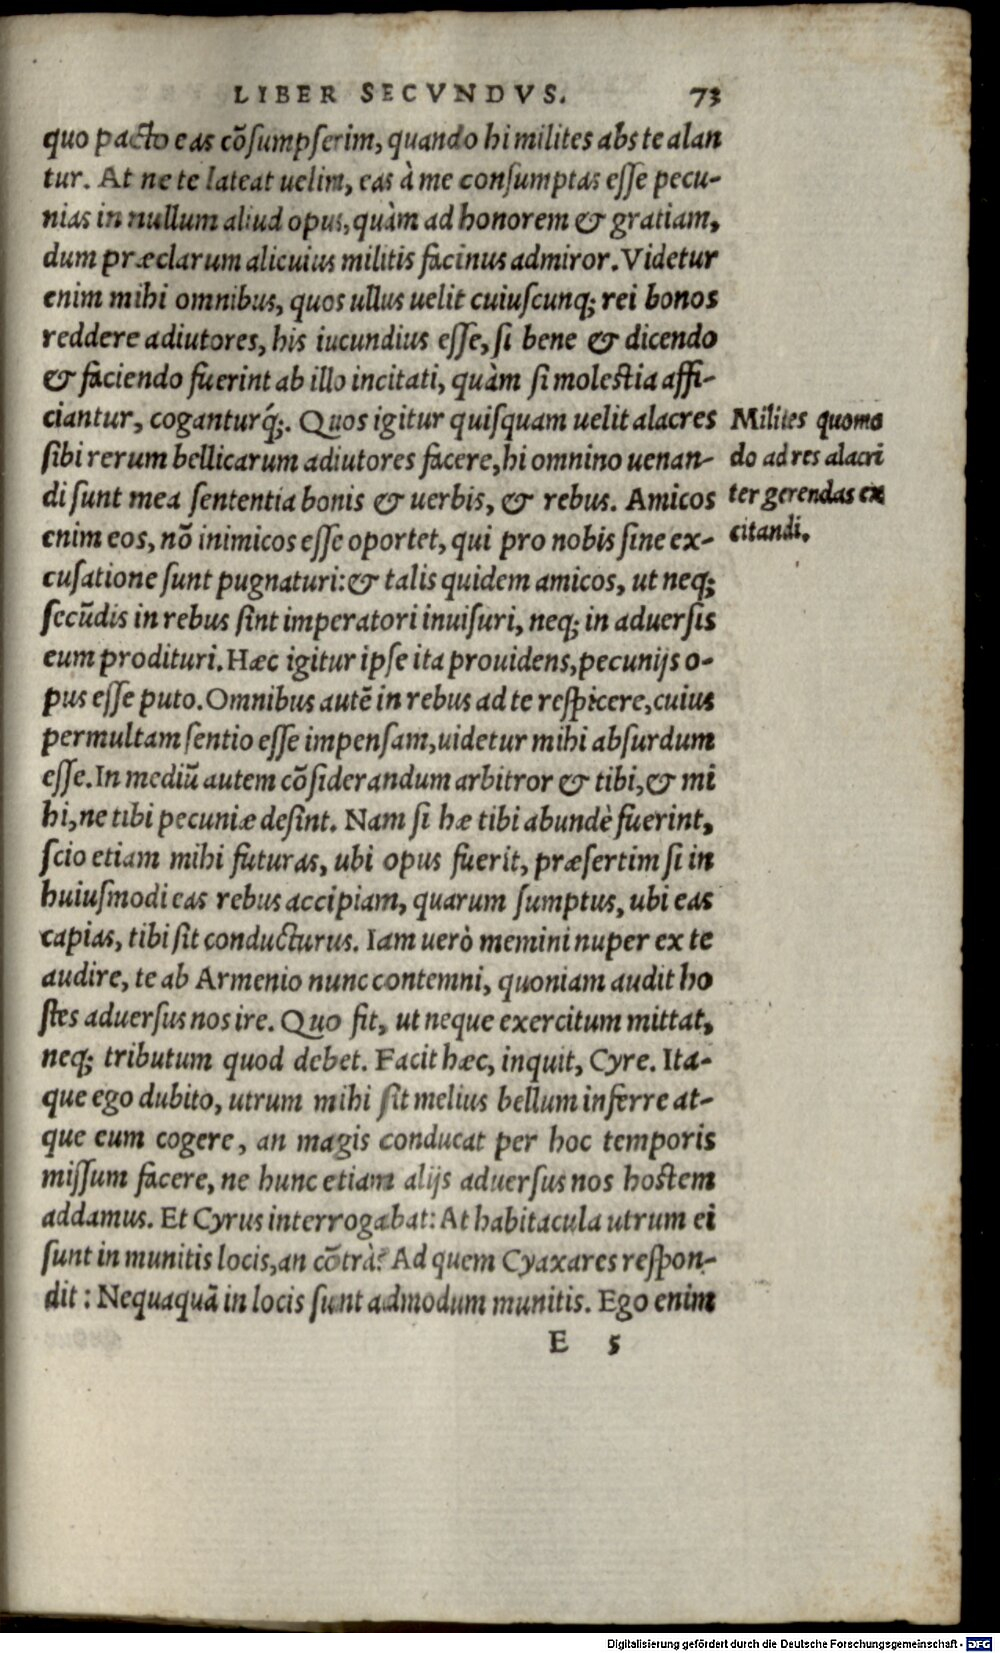 LIBER SECVNDVS. 73
quo pacto eas cõsumpserim, quando hi milites abs te alan
tur. At ne te lateat uelim, eas à me consumptas esse pecu-
nias in nullum aliud opus, quàm ad honorem & gratiam,
dum præclarum alicuius militis facinus admiror. Videtur
enim mihi omnibus, quos ullus uelit cuiuscunq; rei bonos
reddere adiutores, his iucundius esse, si bene & dicendo
& faciendo fuerint ab illo incitati, quàm si molestia affi-
ciantur, coganturq́;. Quos igitur quisquam uelit alacres
sibi rerum bellicarum adiutores facere, hi omnino uenan-
di sunt mea sententia bonis & uerbis, & rebus. Amicos
enim eos, nõ inimicos esse oportet, qui pro nobis sine ex-
cusatione sunt pugnaturi: & talis quidem amicos, ut neq;
secũdis in rebus sint imperatori inuisuri, neq; in aduersis
eum prodituri. Hæc igitur ipse ita prouidens, pecunijs o-
pus esse puto. Omnibus autẽ in rebus ad te respicere, cuius
permultam sentio esse impensam, uidetur mihi absurdum
esse. In mediũ autem cõsiderandum arbitror & tibi, & mi
hi, ne tibi pecuniæ desint. Nam si hæ tibi abundè fuerint,
scio etiam mihi futuras, ubi opus fuerit, præsertim si in
huiusmodi eas rebus accipiam, quarum sumptus, ubi eas
capias, tibi sit conducturus. Iam uerò memini nuper ex te
audire, te ab Armenio nunc contemni, quoniam audit ho
stes aduersus nos ire. Quo fit, ut neque exercitum mittat,
neq; tributum quod debet. Facit hæc, inquit, Cyre. Ita-
que ego dubito, utrum mihi sit melius bellum inferre at-
que eum cogere, an magis conducat per hoc temporis
missum facere, ne hunc etiam alijs aduersus nos hostem
addamus. Et Cyrus interrogabat: At habitacula utrum ei
sunt in munitis locis, an cõtrà? Ad quem Cyaxares respon-
dit: Nequaquã in locis sunt admodum munitis. Ego enim
E 5
Milites quomo
do ad res alacri
ter gerendas ex
citandi.
Digitalisierung gefördert durch die Deutsche Forschungsgemeinschaft - DFG